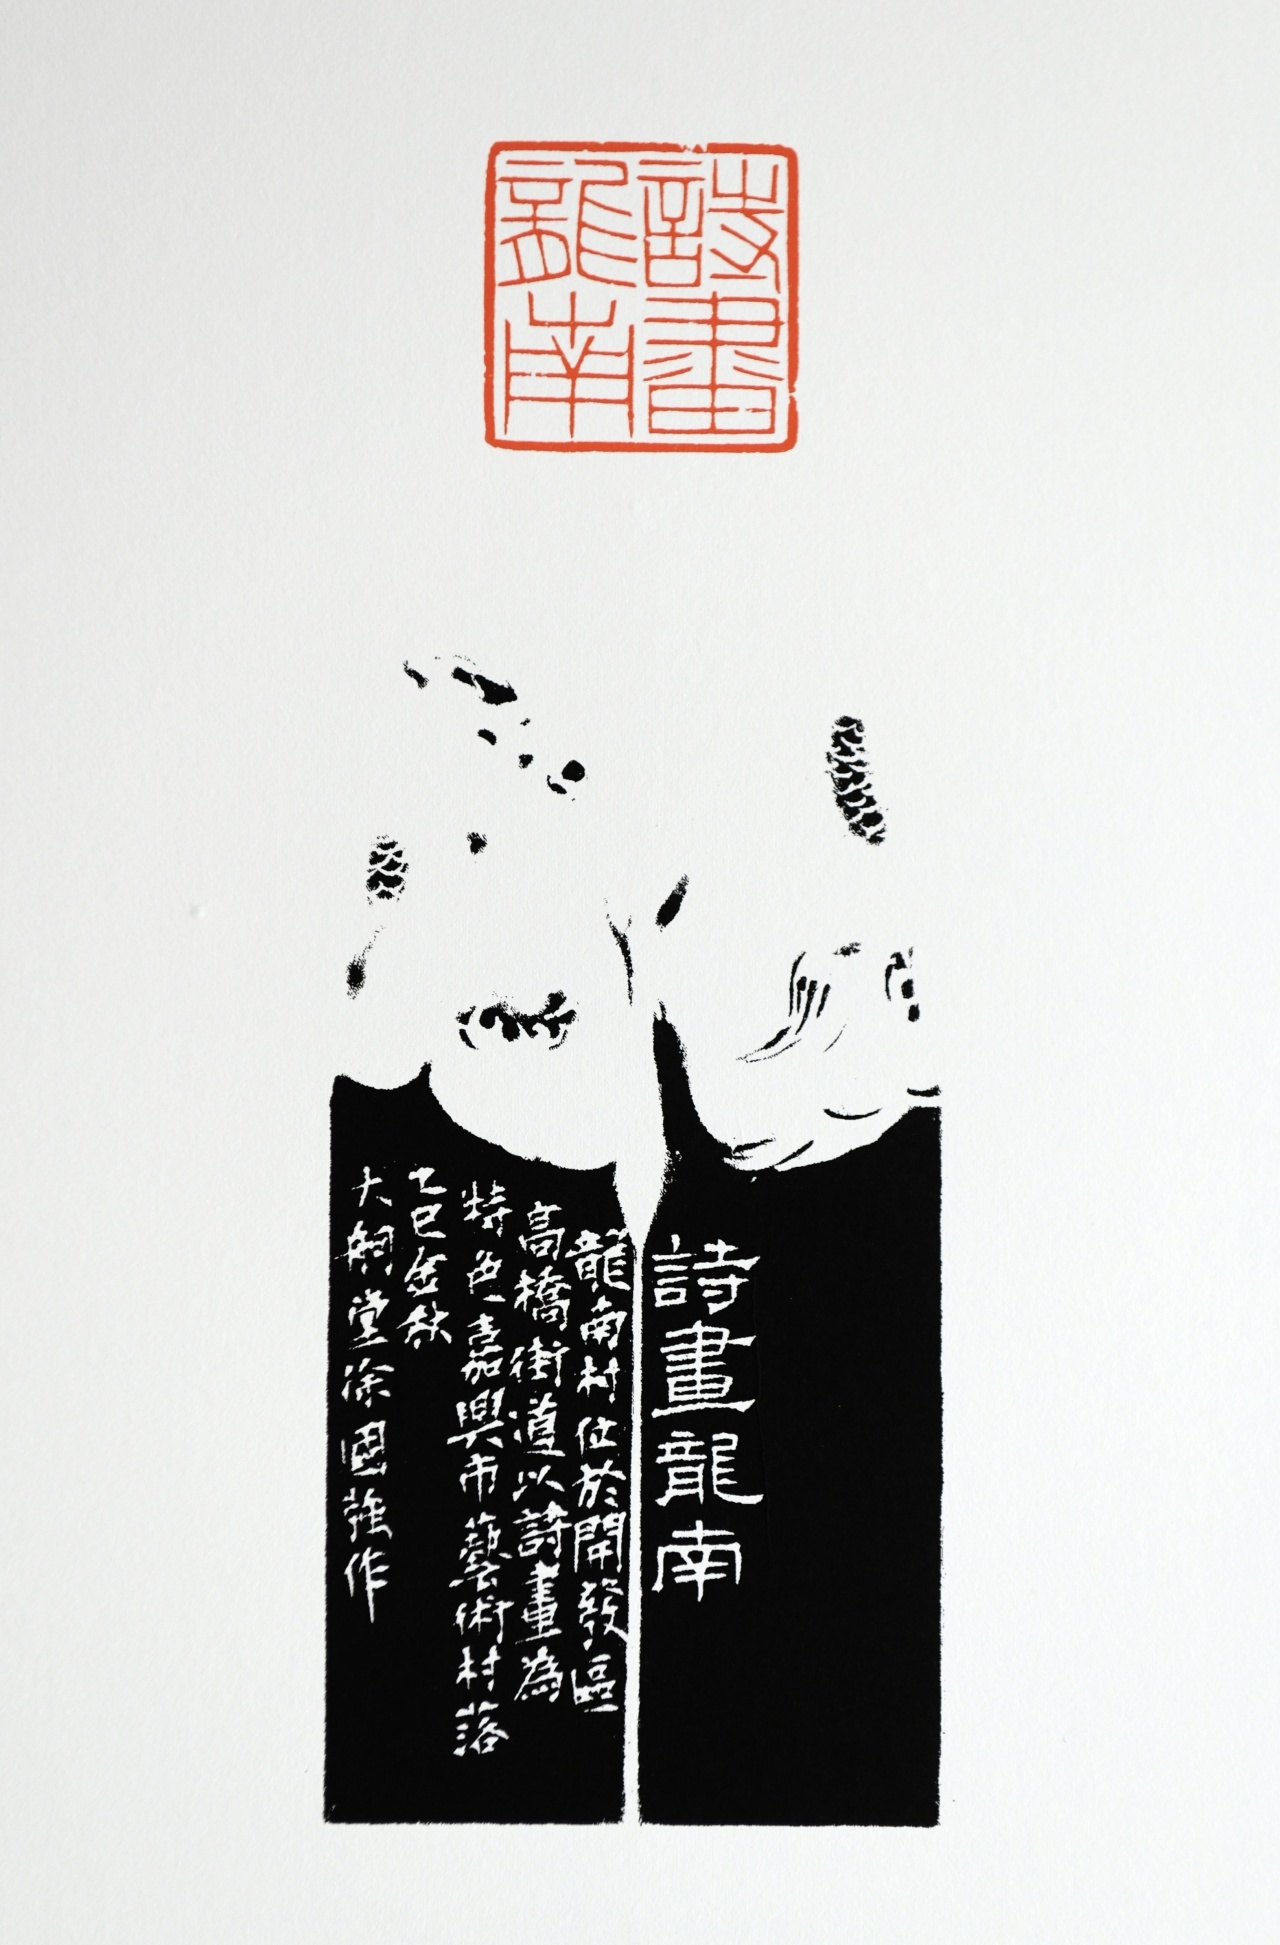 詩畫龍南
詩畫龍南
龍南村位於開發區
高橋街道以詩畫為
特色嘉興市藝術村落
乙巳金秋
大舸堂徐國強作